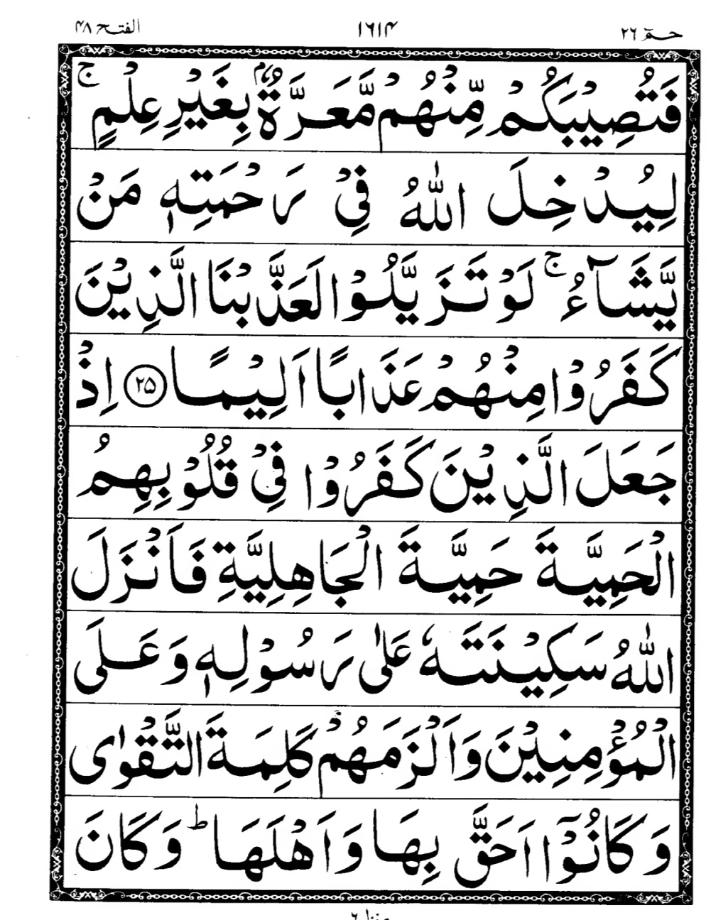 الفتح ٤٨ ١٦١٤ حٰمٓ ٢٦
فَتُصِيْبَكُمْ مِّنْهُمْ مَّعَرَّةٌۢ بِغَيْرِ عِلْمٍ ۚ
لِيُدْخِلَ اللّٰهُ فِيْ رَحْمَتِهٖ مَنْ
يَّشَآءُ ۚ لَوْ تَزَيَّلُوْا لَعَذَّبْنَا الَّذِيْنَ
كَفَرُوْا مِنْهُمْ عَذَابًا اَلِيْمًا ﴿٢٥﴾ اِذْ
جَعَلَ الَّذِيْنَ كَفَرُوْا فِيْ قُلُوْبِهِمُ
الْحَمِيَّةَ حَمِيَّةَ الْجَاهِلِيَّةِ فَاَنْزَلَ
اللّٰهُ سَكِيْنَتَهٗ عَلٰى رَسُوْلِهٖ وَعَلَى
الْمُؤْمِنِيْنَ وَاَلْزَمَهُمْ كَلِمَةَ التَّقْوٰى
وَكَانُوْٓا اَحَقَّ بِهَا وَاَهْلَهَا ؕ وَكَانَ